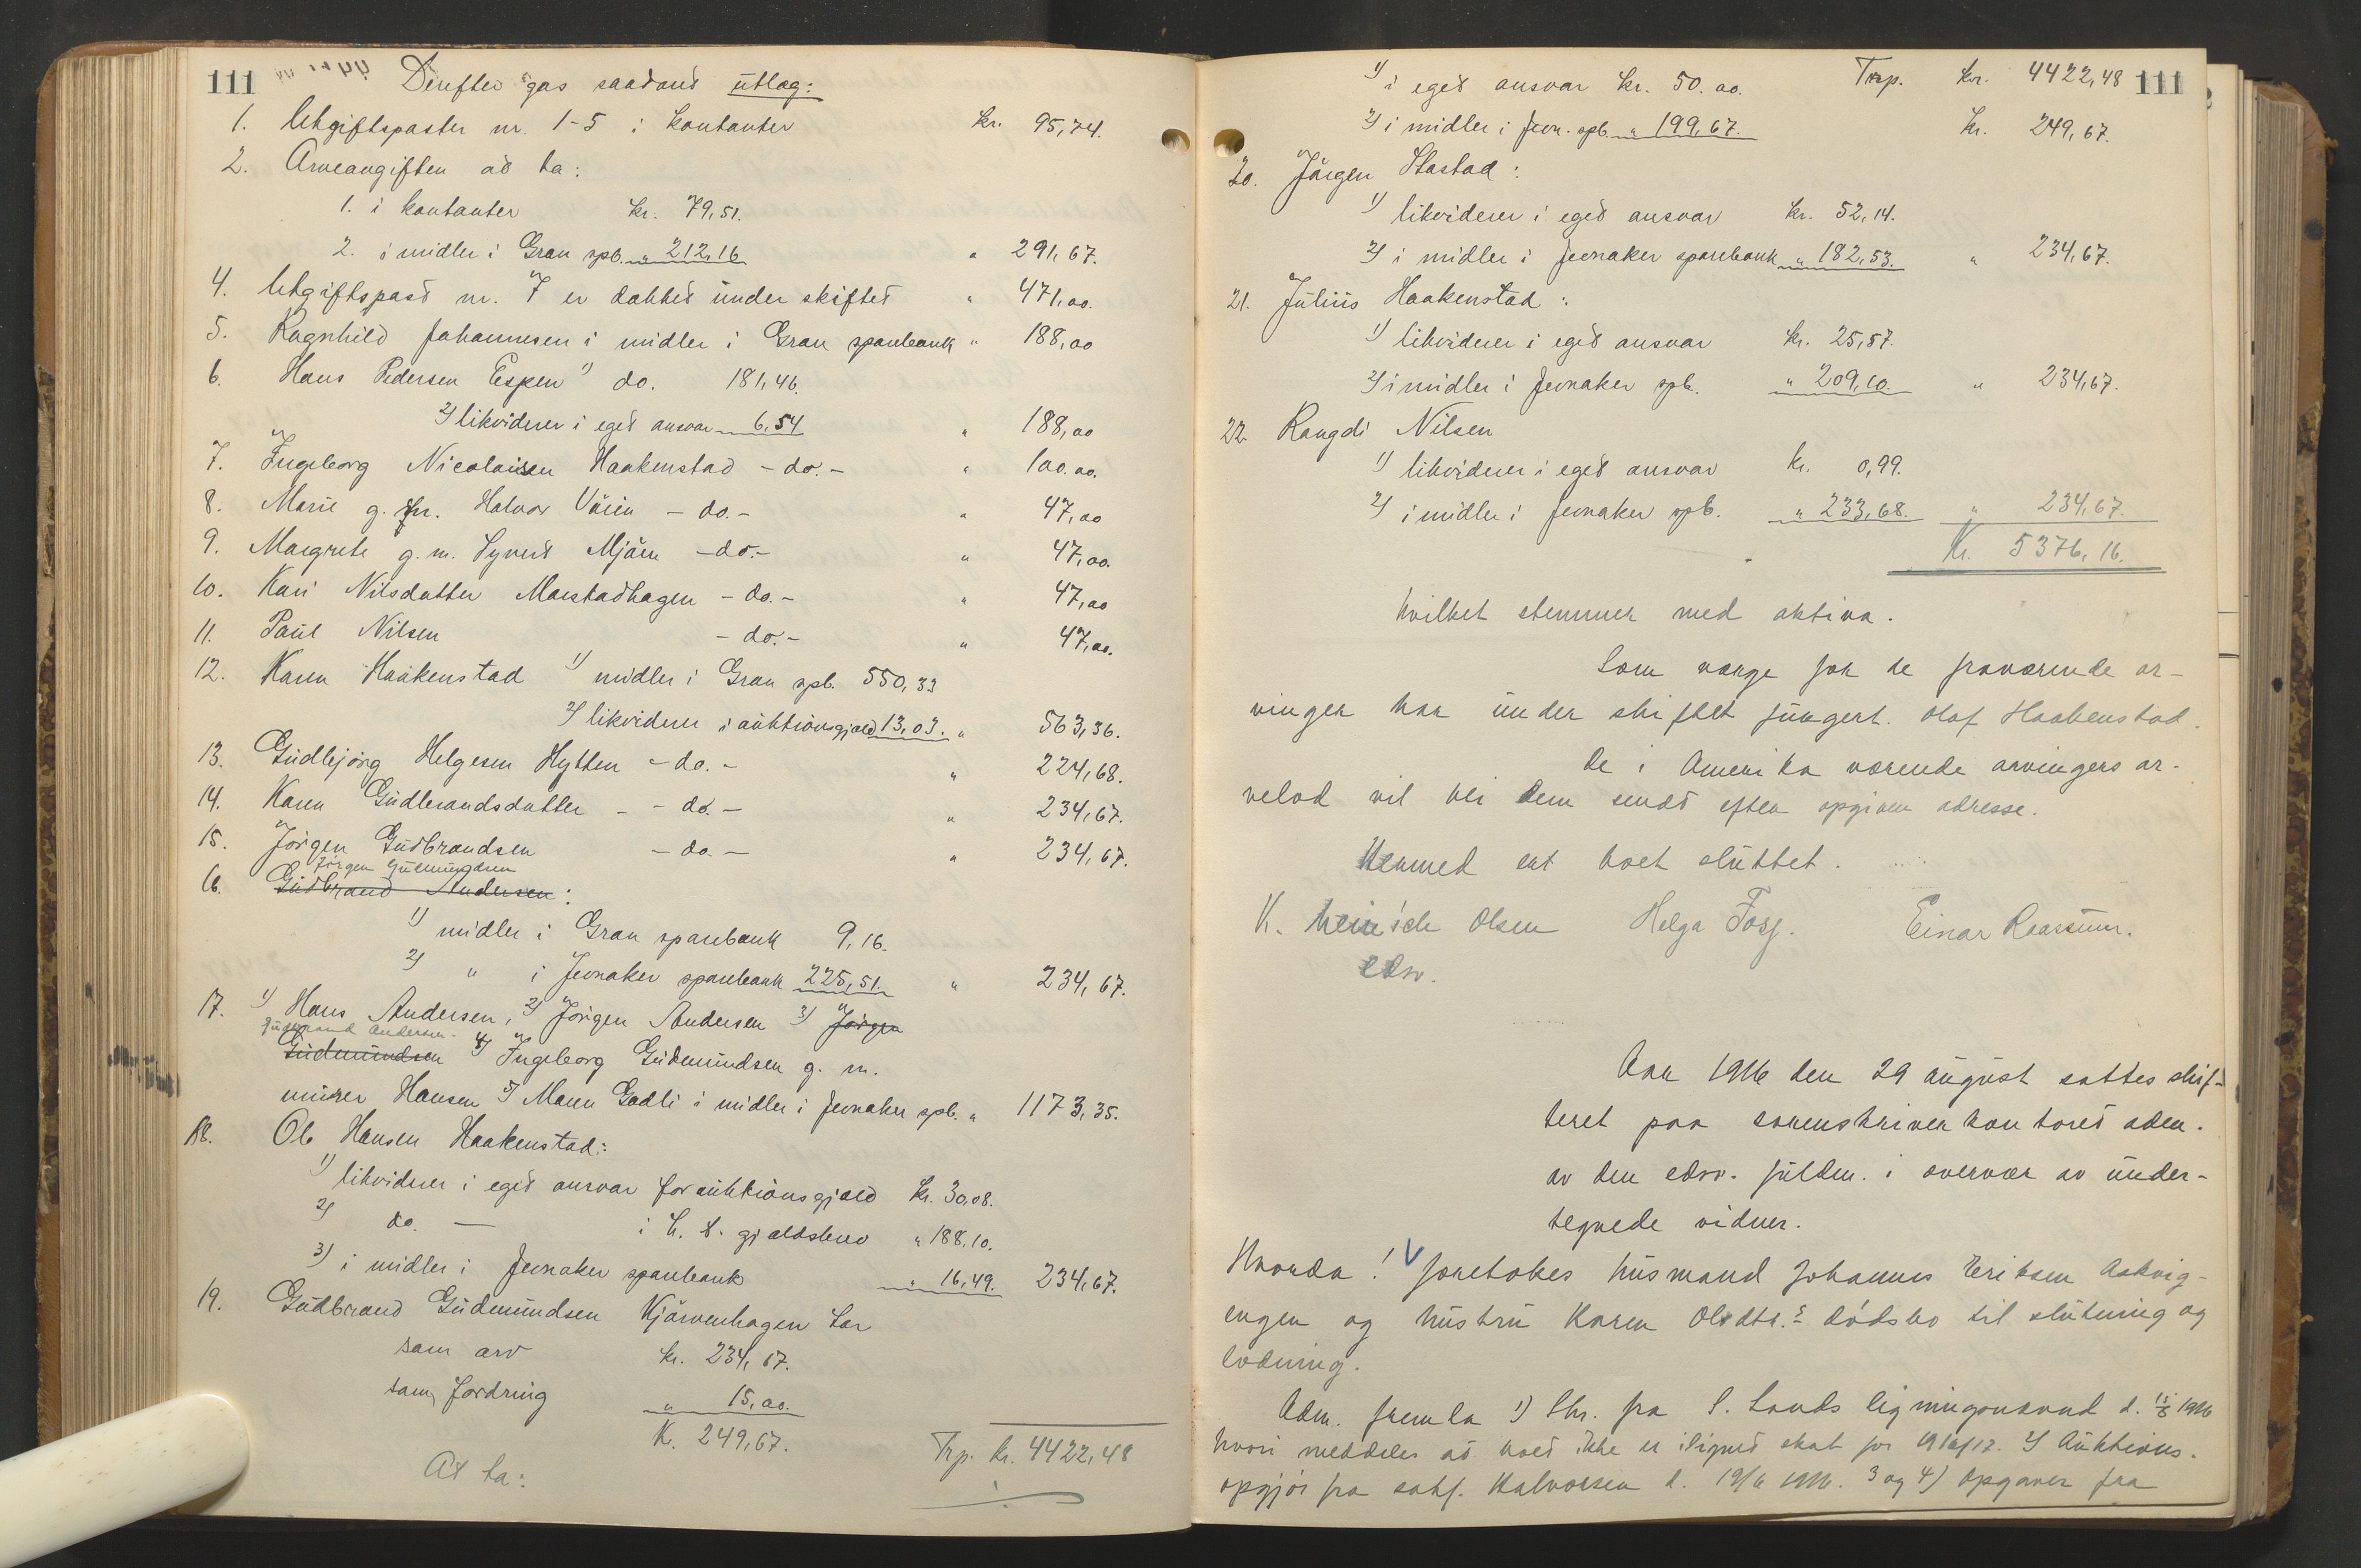 111
Derefter gas saadant utlæg:
1. Utgiftsposter nr. 1-5 i kontanter kr. 95,74.
2. Arveavgiften at ta:
1. i kontanter kr. 79,51.
2. i midler i Gran spb. " 212,16 " 291,67.
4. Utgiftspost nr. 7 er dækket under skiftet " 471,00.
5. Ragnhild Johannesen i midler i Gran sparebank " 188,00
6. Hans Pedersen Espen 1) do. 181,46.
2) likviderer i eget ansvar 6,54 " 188,00
7. Ingeborg Nicolaisen Haakenstad - do. - " 100.00.
8. Marie g. m. Halvor Vøien - do. - " 47,00
9. Margrete g. m. Syvert Mjørn - do. - " 47,00.
10. Kari Nilsdatter Marstadhagen - do. - " 47,00
11. Paul Nilsen - do. - " 47,00.
12. Karen Haakenstad 1) midler i Gran spb. 550,33
2) likviderer i auktionsgjæld 13,03. " 563,36.
13. Gudbjørg Helgesen Hytten - do. - " 224,68.
14. Karen Gudbrandsdatter - - do. - " 234,67.
15. Jørgen Gudbrandsen - do. - " 234,67.
Jørgen Gudmundsen
16. Gudbrand Andersen:
1) midler i Gran sparebank 9,16.
2) " i Jevnaker sparebank 225,51. " 234,67.
17. 1) Hans Andersen, 2) Jørgen Andersen 3) Jørgen
Gudbrand Andersen
Gudmundsen 4) Ingeborg Gudmundsen g. m.
murer Hansen 5) Maren Godli i midler i Jevnaker spb. " 1173,35.
18. Ole Hansen Haakenstad:
1) likviderer i eget ansvar for auktionsgjæld kr. 30,08.
2) do. — i h. t. gjældsbrev " 188.10.
3) i midler i Jevnaker sparebank " 16,49. 234,67.
19. Gudbrand Gudmundsen Kjørvenhagen har
som arv kr. 234,67.
som fordring " 15,00.
K. 249,67. Trp. kr. 4422,48
At ta:
1) i eget ansvar kr. 50.00. Trsp. kr. 4422,48 111
2) i midler i Jevn. spb. " 199,67. kr. 249,67.
20. Jørgen Stastad:
1) likviderer i eget ansvar kr. 52,14.
2) i midler i Jevnaker sparebank " 182,53. " 234,67.
21. Julius Haakenstad:
1) likviderer i eget ansvar kr. 25,57.
2) i midler i Jevnaker spb. " 209,10. " 234,67.
22. Rangdi Nilsen
1) likviderer i eget ansvar kr. 0,99.
2) i midler i Jevnaker spb. " 233,68. " 234,67.
Kr. 5376,16.
hvilket stemmer med aktiva.
Som værge for de fraværende ar-
vinger har under skiftet fungert Olof Haakenstad.
De i Amerika værende arvingers ar-
velod vil bli dem sendt efter opgiven adresse.
Hermed er boet sluttet.
K. Olsen Helga Fosf. Einar Raassum.
edsv.
Aar 1916 den 29 august sattes skif-
teret paa sorenskriverkontoret adm.
av den edsv. fuldm. i overvær av under-
tegnede vidner.
Hvorda! foretokes husmand Johannes Eriksen Askvig-
engen og hustru Karen Olsdtr.s dødsbo til slutning og
lodning.
Adm. fremla 1) Skr. fra S. Lands ligningsnævnd d. 15/8 1916
hvori meddeles at boet ikke er ilignet skat for 1916/17. 2) Auktions-
opgjør fra sakf. Halvorsen d. 19/6 1916. 3 og 4) Opgaver fra